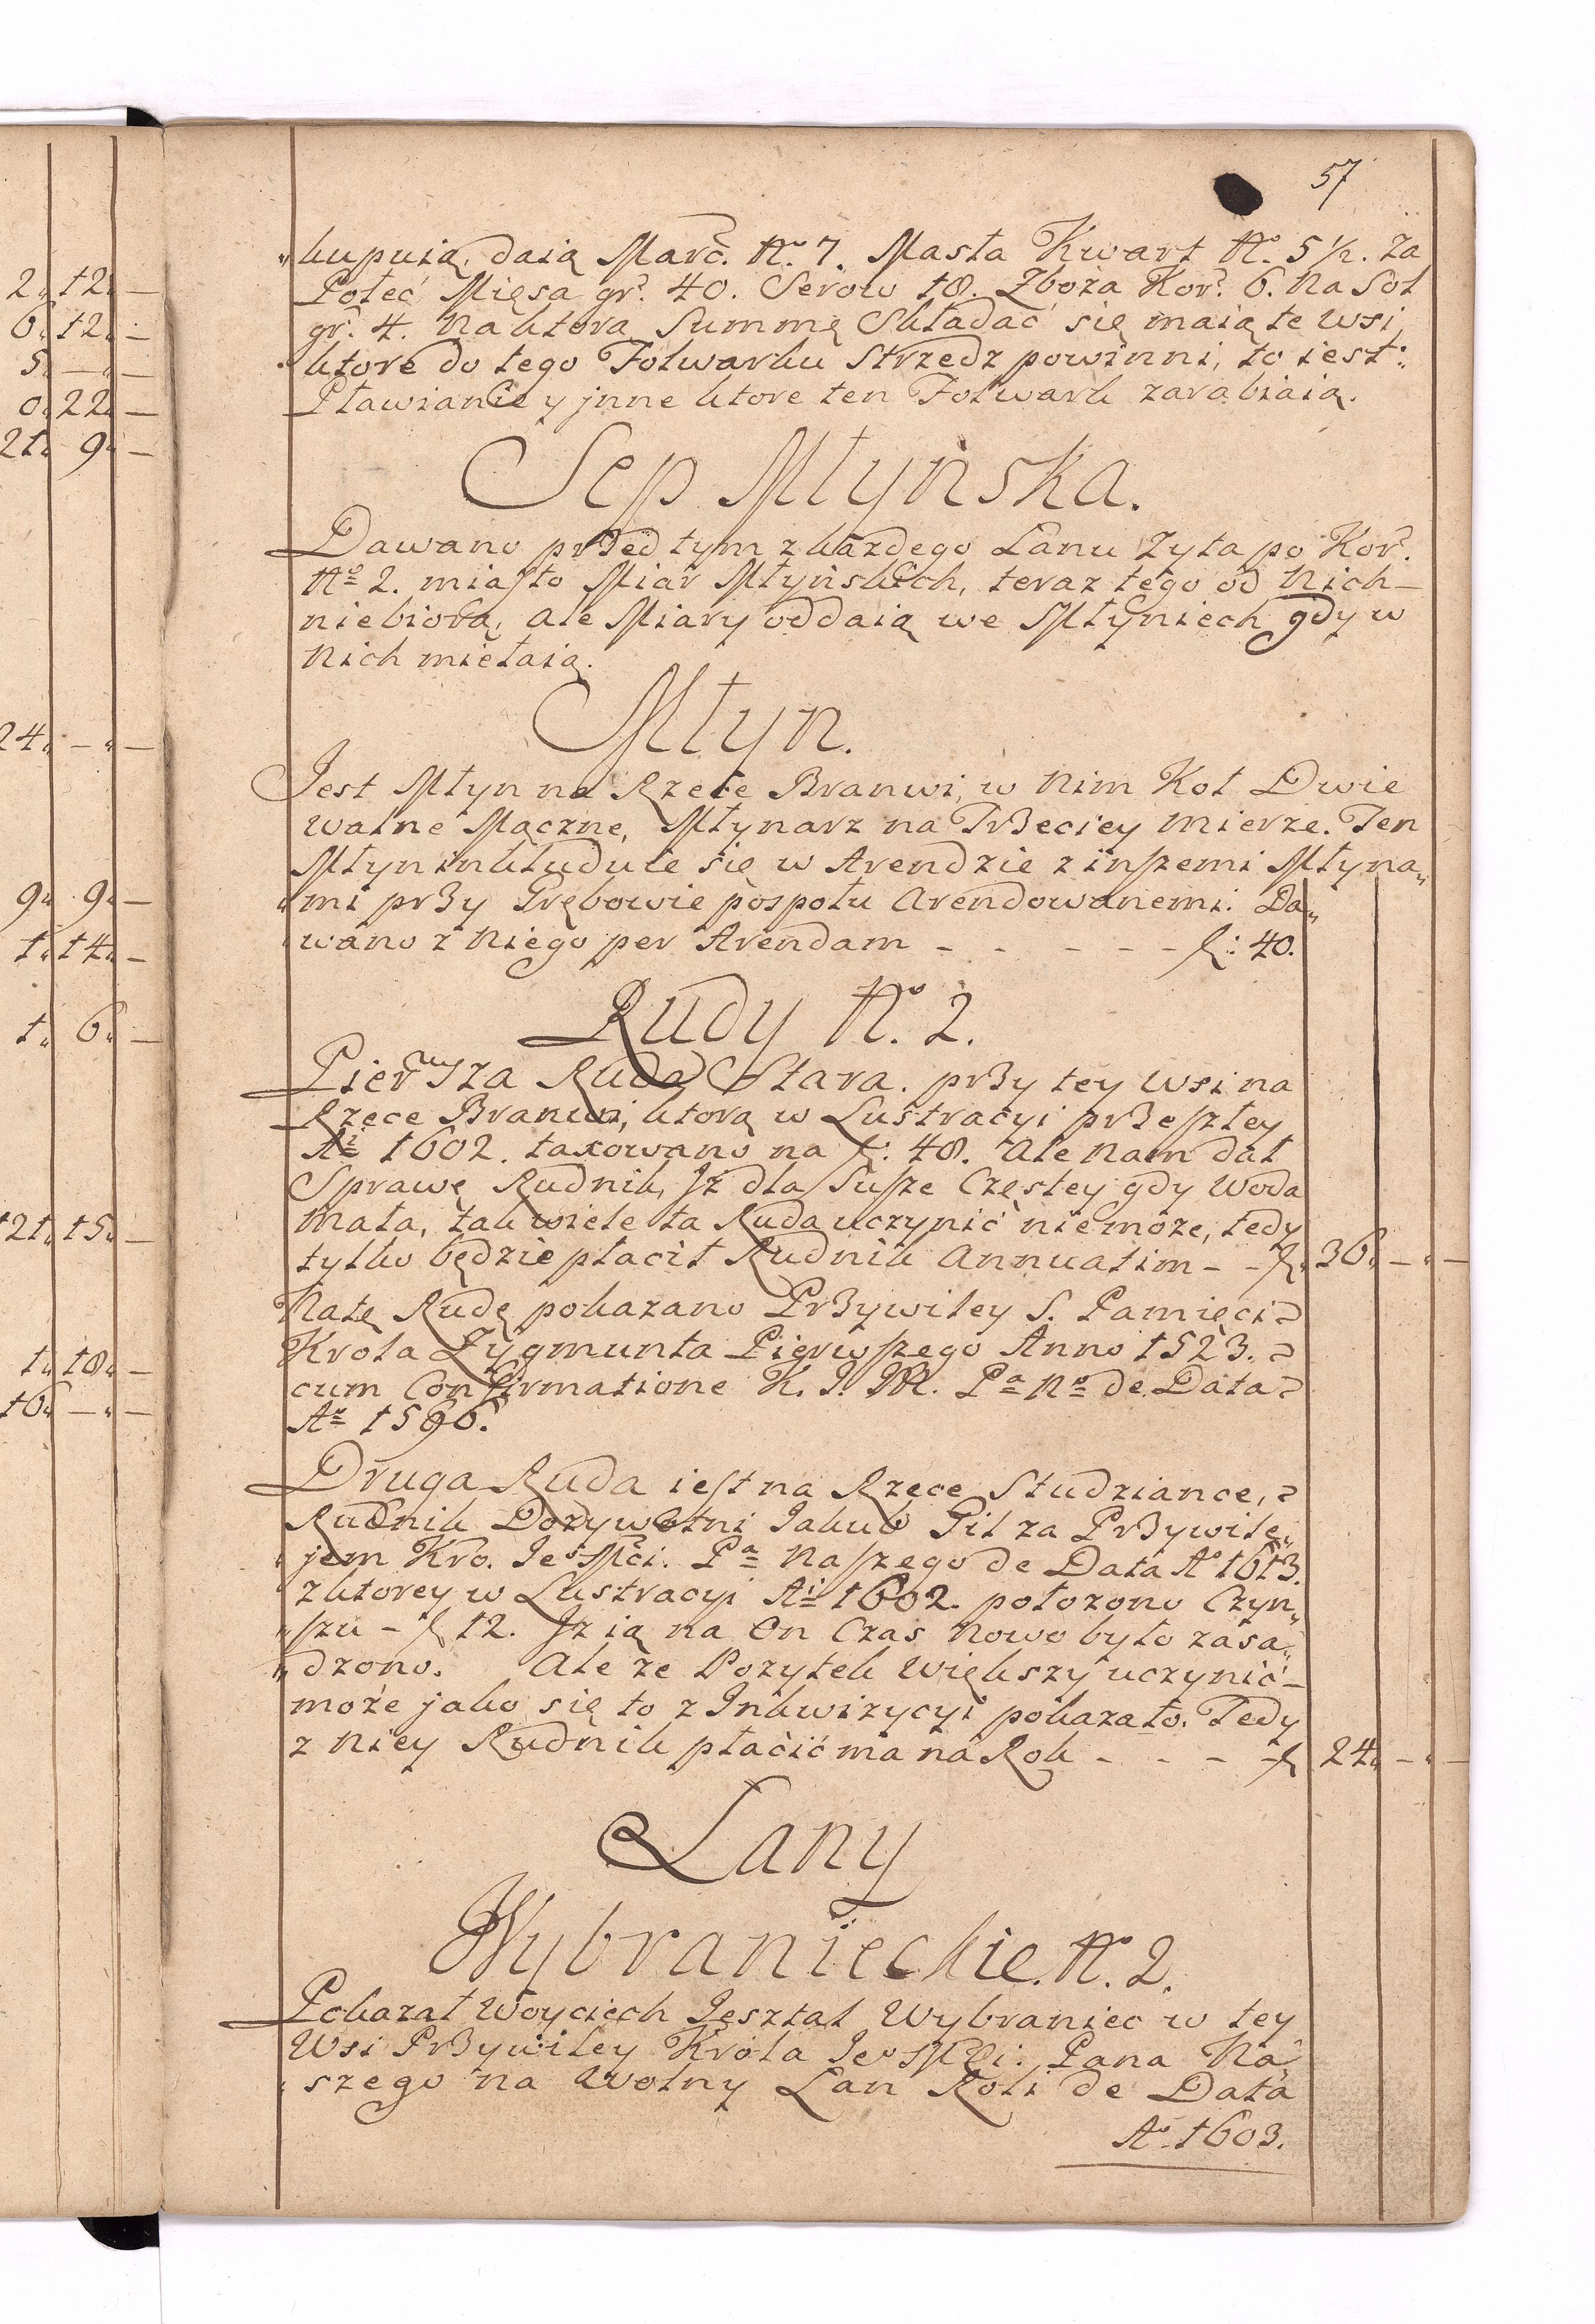 57
„kupuią, daią Marc. No. 7. Masła Kwart No. 5 1/2. Za
Połeć Mięsa gr. 40. Serow 18. Zboża Kor. 6. Na Sol
gr. 4. Na ktorą Summę Składać się maią te Wsi
ktore do tego Folwarku Strzedz powinni, to iest:
Pławianie y jnne ktore ten Folwark zarabiaią.
Sep Młyńska.
Dawano przed tym z każdego Łanu Żyta po Kor.
No 2. miasto Miar Młyńskich, teraz tego od Nich –
niebiorą, ale Miary oddaią we Młyniech gdy w
Nich mielaią.
Młyn.
Jest Młyn na Rzece Branwi, w Nim Koł Dwie
walne Mączne, Młynarz na Trzeciey Mierze. Ten
Młyn inkluduie się w Arendzie z inszemi Młyna„
„mi przy Grębowie pospołu Arendowanemi. Da„
„wano z Niego per Arendam - - - - - fl: 40.
Rudy No. 2.
Pierwsza Ruda Stara. przy tey Wsi na
Rzece Branwi, ktorą w Lustracyi przeszłey
Ai 1602. taxowano na fl: 48. Ale Nam dał
Sprawę Rudnik, Jż dla Susze Częstey gdy Woda
Mała, tak wiele ta Ruda uczynić nie może, tedy
tylko będzie płacił Rudnik Annuatim - - fl. 36. – „ –
Natę Rudę pokazano Przywiley S. Pamięci
Krola Zygmunta Pierwszego Anno 1523.
cum Confirmatione K. J. M. Pa No de Data
Ao 1596.
Druga Ruda iest na Rzece Studziance,
Rudnik Dożywotni Jakub Gil za Przywile„
„jem Kro. Jeo Mci. Pa Naszego de Data Ao 1613.
z ktorey w Lustracyi Ai 1602. położono Czyn„
„szu – fl 12. Jż ią na On Czas Nowo było zasa„
„dzono. Ale że Pożytek Większy uczynić –
może jako się to z Inkwizycyi pokazało. Tedy
z Niey Rudnik płacić ma na Rok - - - - fl 24. – „ –
Łany
Wybranieckie. No. 2.
Pokazał Woyciech Jesztal Wybraniec w tey
Wsi Przywiley Króla Jeo Mci: Pana Na„
„szego na Wolny Łan Roli de Data
Ao. 1603.